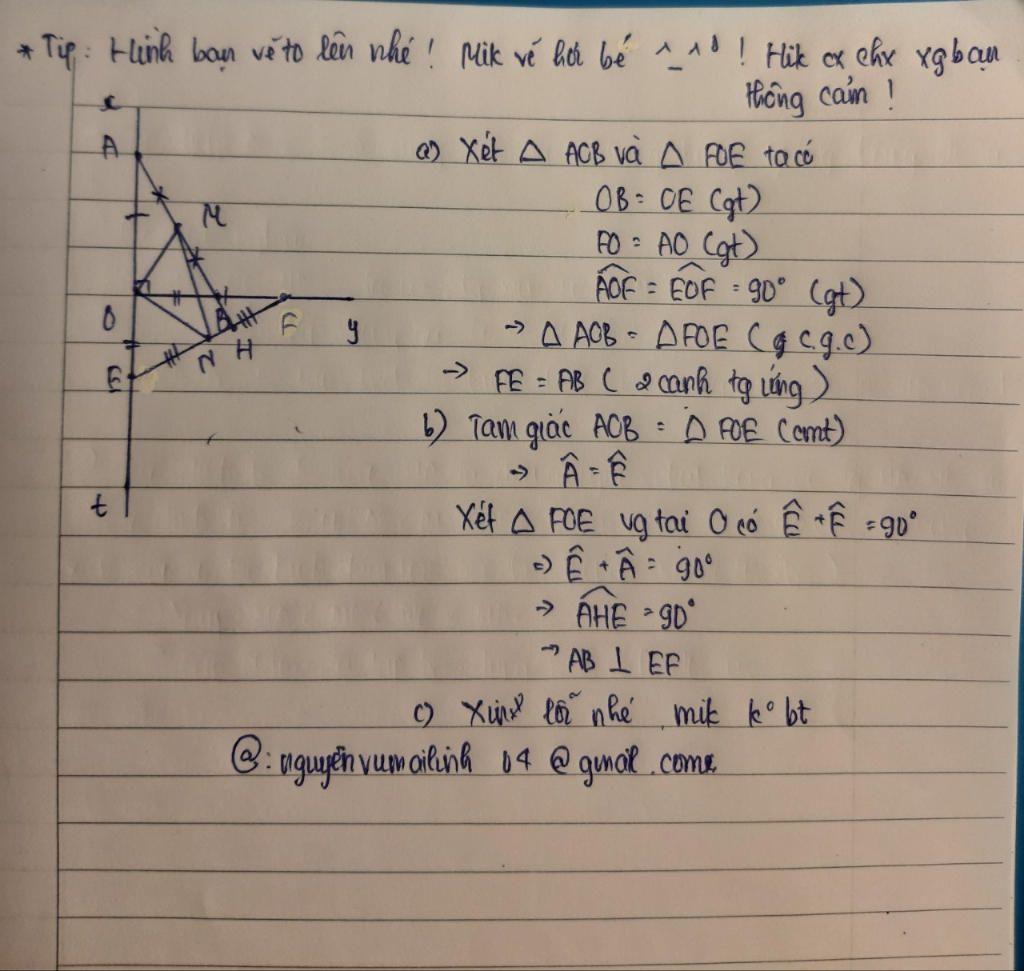 * Tip: Hình bạn vẽ to lên nhé! Mik vẽ hơi bé ^_^! Hik cx chx xg bạn
thông cảm!
x
A
M
O
B
F
y
N
H
E
t
a) Xét △ AOB và △ FOE ta có
OB = OE (gt)
FO = AO (gt)
AOF = EOF = 90° (gt)
→ △ AOB = △ FOE ( g c.g.c)
→ FE = AB ( 2 cạnh tg ứng )
b) Tam giác AOB = △ FOE (cmt)
→ Â = F̂
Xét △ FOE vg tại O có Ê + F̂ = 90°
=> Ê + Â = 90°
→ AHE = 90°
→ AB ⊥ EF
c) Xin lỗi nhé mik k° bt
@: nguyễnvumailinh 04 @ gmail .com